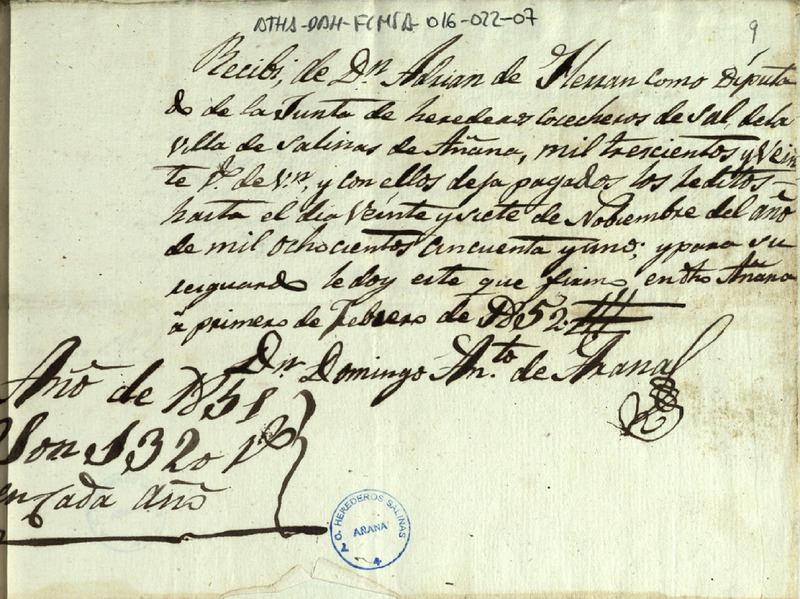 ATHA-DAH-FCMSA-016-022-07
9
Recibi, de Dn. Adrian de Herran como Diputa
do de la Junta de herederos cosecheros de sal, de la
Villa de Salinas de Añana, mil trescientos y Vein
te rs. de Vn., y con ellos deja pagados los reditos
hasta el dia Veinte y siete de Nobiembre del año
de mil ochocientos cincuenta y uno; y para su
resguardo le doy este que firmo, en dho Añana
á primero de Febrero de 1852
Dn. Domingo Anto. de Arana
Año de 1851
Son 1320 rs
en cada año
HEREDEROS SALINAS
AÑANA